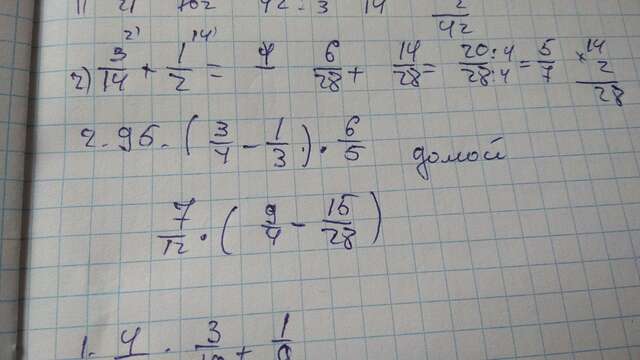 2) 3/14 + 1/2 = 6/28 + 14/28 = 20:4/28:4 = 5/7 × 14 2 28
2.95. (3/4 - 1/3) · 6/5 домой
7/12 · (9/4 - 15/28)
1. 4 · 3 + 1